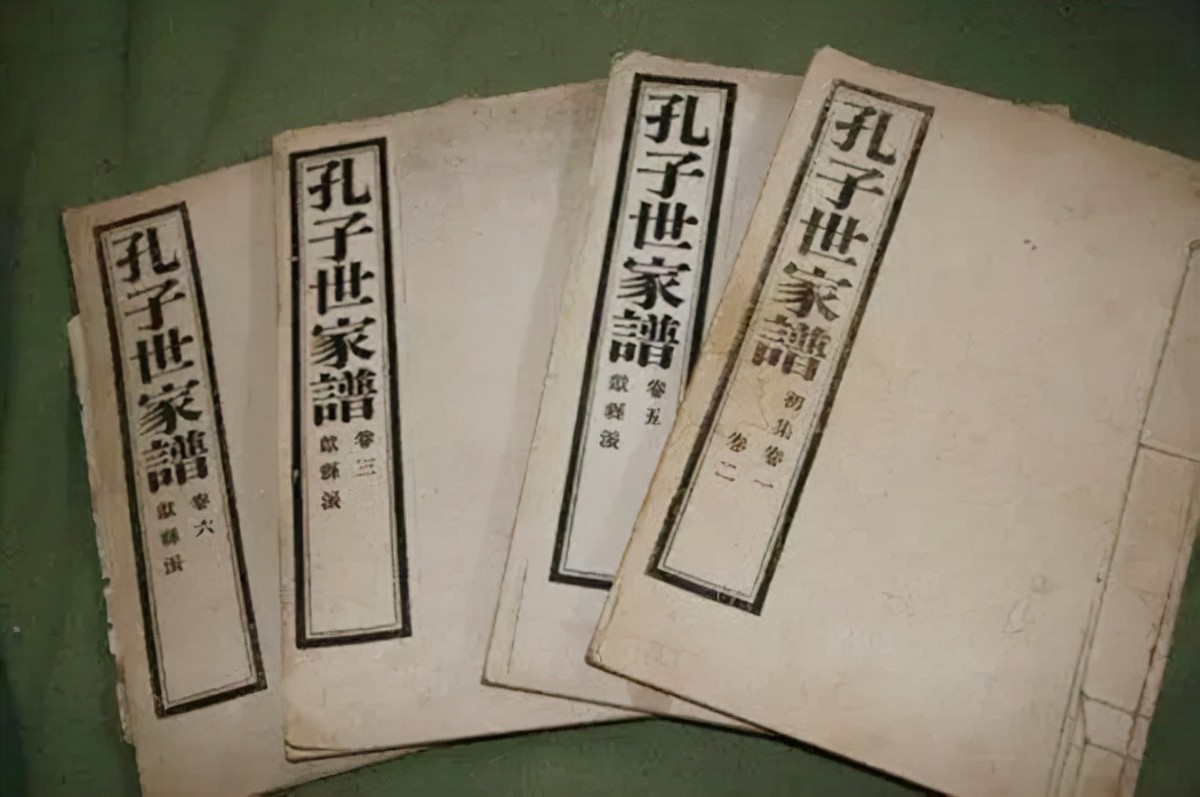 孔子世家譜
卷六
獻縣派
孔子世家譜
卷三
獻縣派
孔子世家譜
卷五
獻縣派
孔子世家譜
初集卷一
卷二